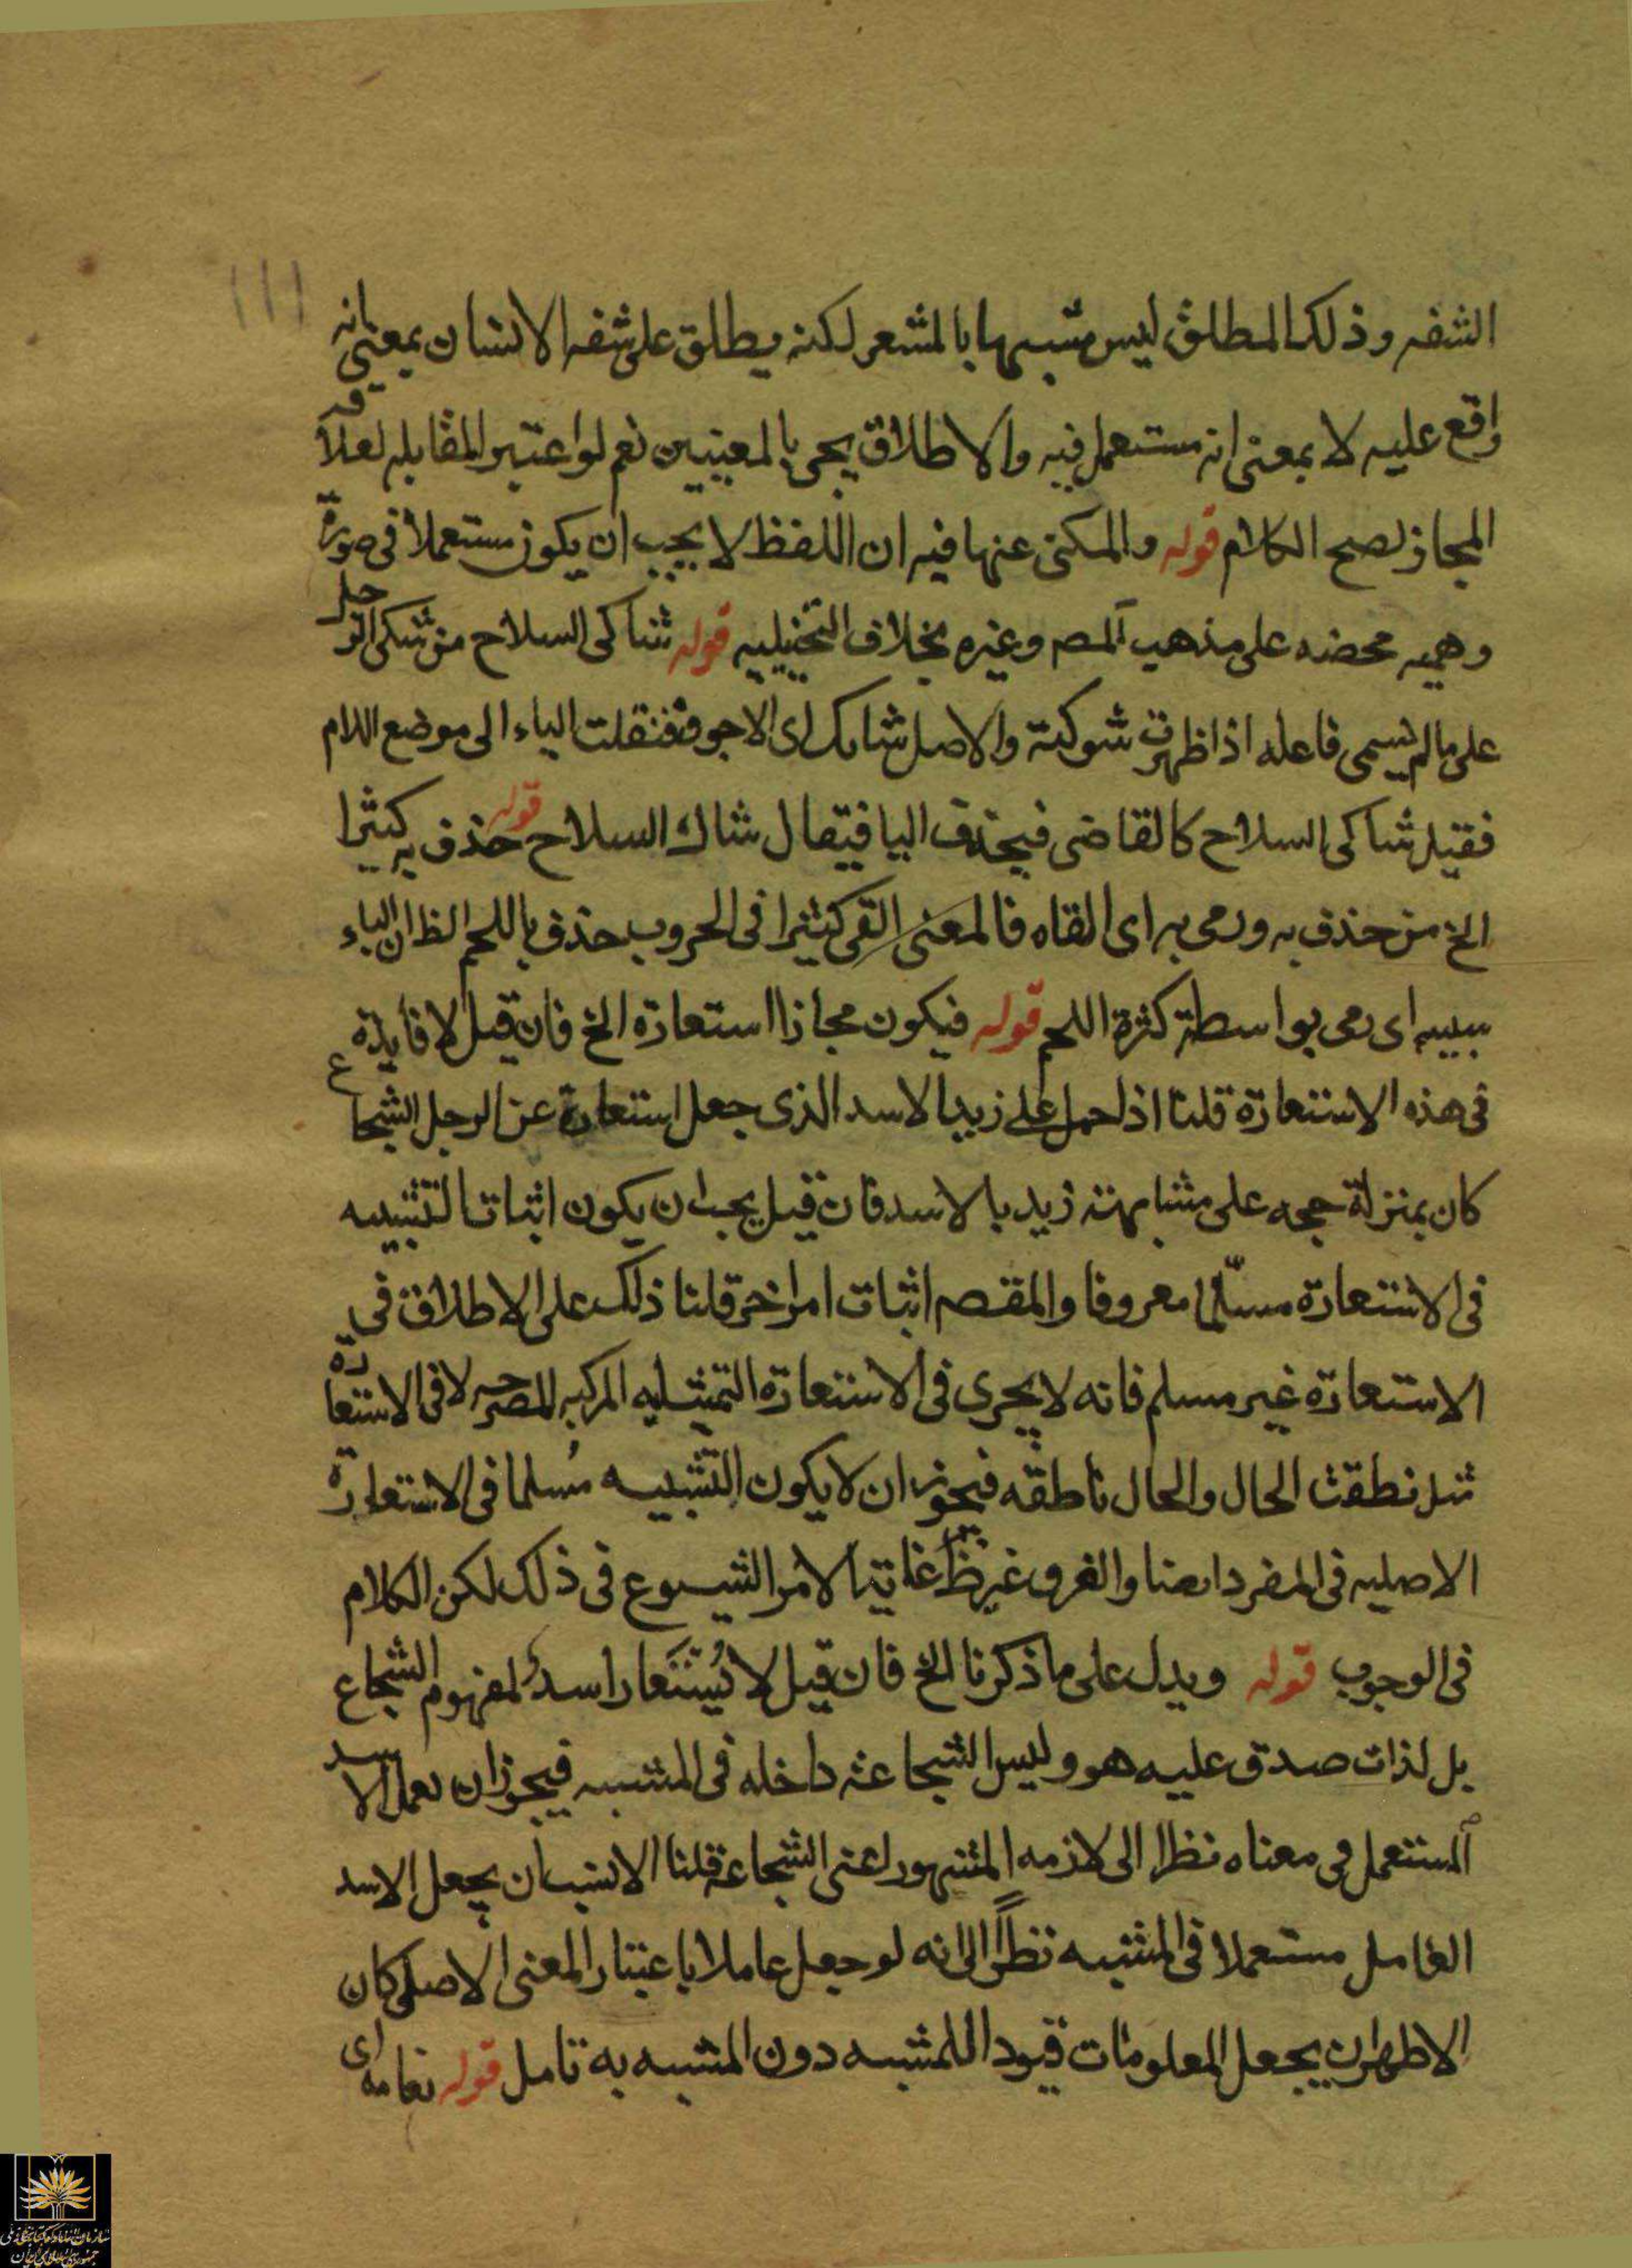 الشفه وذلك المطلق ليس مشبها بالمشعر لكنه يطلق على شفه الانسان بمعنى انه
واقع عليه لا بمعنى انه مستعمل فيه والاطلاق يجى بالمعنيين نعم لو اعتبر المقابله لعلاقه
المجاز لصح الكلام قوله والمكنى عنها فيه ان اللفظ لا يجب ان يكون مستعملا فى صورة
وهميه محضه على مذهب المص وغيره بخلاف التخييليه قوله شاكى السلاح من شكى الرجل
على ما لم يسمى فاعله اذا ظهرت شوكته والاصل شايك اى الاجوف فنقلت الياء الى موضع اللام
فقيل شاكى السلاح كالقاضى فيحذف اليا فيقال شاك السلاح قوله حذف به كثيرا
الخ من حذف به ورمى به اى القاه فالمعنى القى كثيرا فى الحروب حذف باللحم الظ ان الباء
سببيه اى رمى بواسطة كثرة اللحم قوله فيكون مجازا استعارة الخ فان قيل لا فايدة
فى هذه الاستعارة قلنا اذا حمل على زيد الاسد الذى جعل استعارة عن الرجل الشجاع
كان بمنزلة حجه على مشابهته زيد بالاسد فان قيل يجب ان يكون اثبات التشبيه
فى الاستعارة مسلّما معروفا والمقصم اثبات امر اخر قلنا ذلك على الاطلاق فى
الاستعارة غير مسلم فانه لا يجرى فى الاستعارة التمثيليه المركبه المصرحه لا فى الاستعارة
مثل نطقت الحال والحال ناطقه فيجوز ان لا يكون التشبيه مُسلما فى الاستعارة
الاصليه فى المفرد ايضا والفرق غير ظ غاية الامر الشيوع فى ذلك لكن الكلام
فى الوجوب قوله ويدل على ما ذكرنا الخ فان قيل لا يُستَعار اسد لمفهوم الشجاع
بل لذات صدق عليه هو وليس الشجاعة داخله فى المشبه فيجوز ان يعمل الاسد
المستعمل فى معناه نظرا الى لازمه المشهور اعنى الشجاعة قلنا الانسب ان يجعل الاسد
العامل مستعملا فى المشبه نظرًا الى انه لو جعل عاملا باعتبار المعنى الاصلى كان
الاظهر ان يجعل المعلومات قيودا للمشبه دون المشبه به تامل قوله نعامه اى